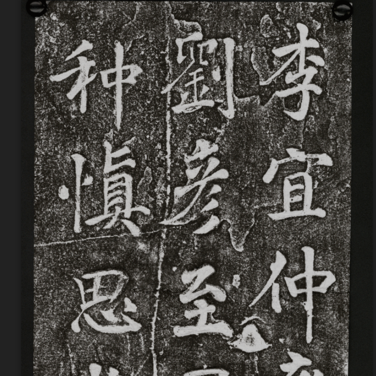 李宜仲
劉彦至
种慎思